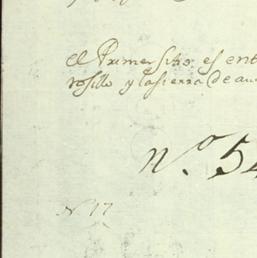 el Primer sitio es ent
rosillo y la sierra de au
n.º 54
N 17